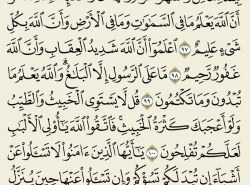 أَنَّ ٱللَّهَ يَعْلَمُ مَا فِي ٱلسَّمَٰوَٰتِ وَمَا فِي ٱلْأَرْضِ وَأَنَّ ٱللَّهَ بِكُلِّ
شَيْءٍ عَلِيمٌ ٩٧ ٱعْلَمُوٓا۟ أَنَّ ٱللَّهَ شَدِيدُ ٱلْعِقَابِ وَأَنَّ ٱللَّهَ
غَفُورٌ رَّحِيمٌ ٩٨ مَّا عَلَى ٱلرَّسُولِ إِلَّا ٱلْبَلَٰغُ وَٱللَّهُ يَعْلَمُ مَا
تُبْدُونَ وَمَا تَكْتُمُونَ ٩٩ قُل لَّا يَسْتَوِي ٱلْخَبِيثُ وَٱلطَّيِّبُ
وَلَوْ أَعْجَبَكَ كَثْرَةُ ٱلْخَبِيثِ فَٱتَّقُوا۟ ٱللَّهَ يَٰٓأُو۟لِي ٱلْأَلْبَٰبِ
لَعَلَّكُمْ تُفْلِحُونَ ١٠٠ يَٰٓأَيُّهَا ٱلَّذِينَ ءَامَنُوا۟ لَا تَسْـَٔلُوا۟ عَنْ
أَشْيَآءَ إِن تُبْدَ لَكُمْ تَسُؤْكُمْ وَإِن تَسْـَٔلُوا۟ عَنْهَا حِينَ يُنَزَّلُ